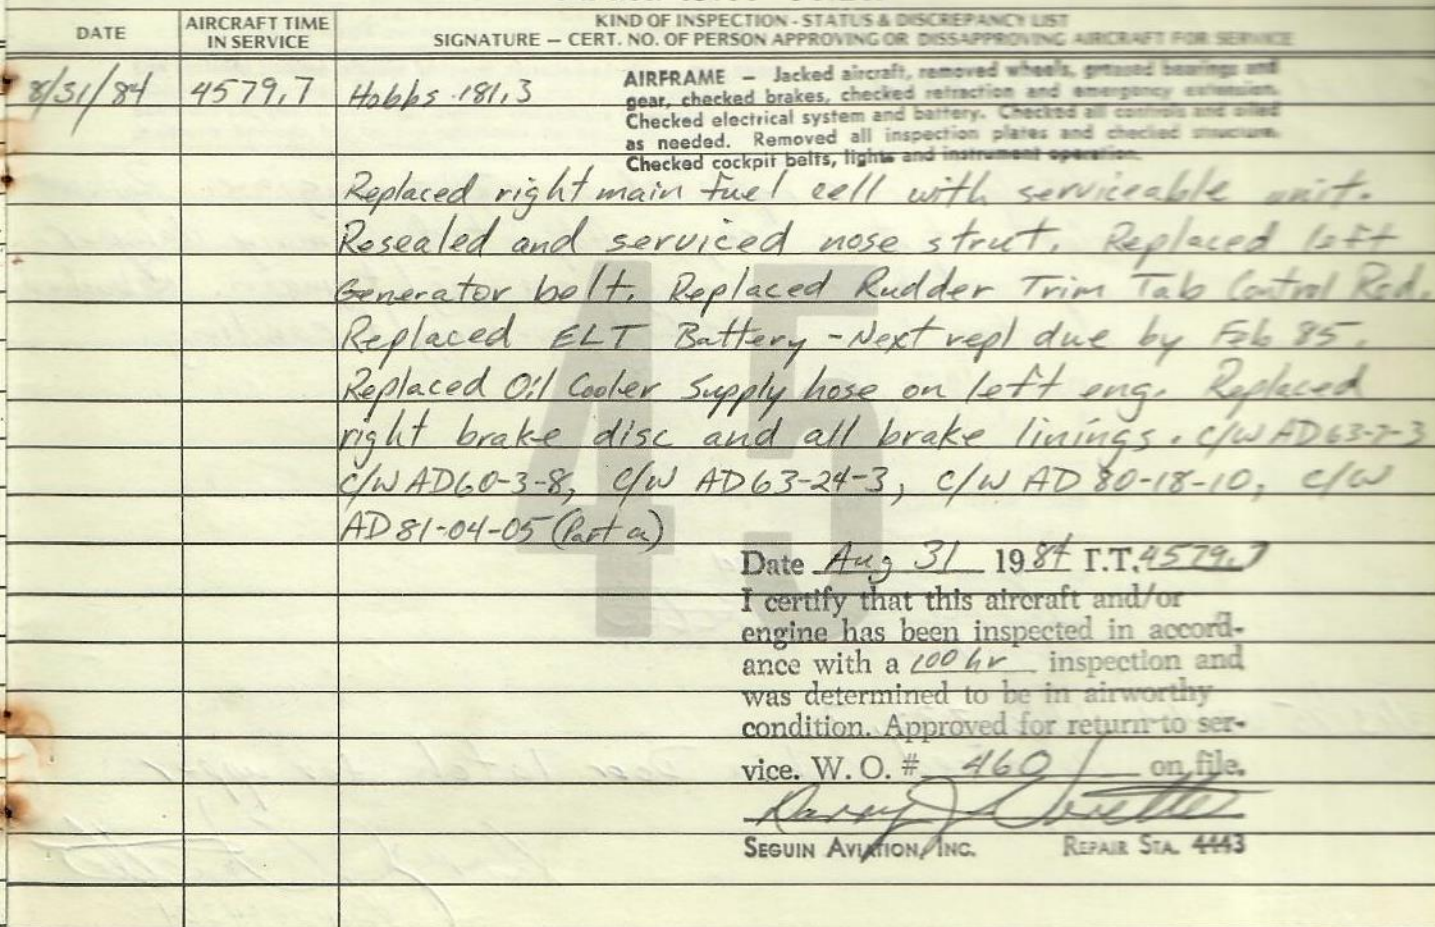 DATE
AIRCRAFT TIME
IN SERVICE
KIND OF INSPECTION - STATUS & DISCREPANCY LIST
SIGNATURE — CERT. NO. OF PERSON APPROVING OR DISSAPPROVING AIRCRAFT FOR SERVICE
8/31/84 4579.7 Hobbs 181.3
AIRFRAME — Jacked aircraft, removed wheels, greased bearings and
gear, checked brakes, checked retraction and emergency extension.
Checked electrical system and battery. Checked all controls and oiled
as needed. Removed all inspection plates and checked structure.
Checked cockpit belts, lights and instrument operation.
Replaced right main fuel cell with serviceable unit.
Resealed and serviced nose strut. Replaced left
Generator belt. Replaced Rudder Trim Tab Control Rod.
Replaced ELT Battery - Next repl due by Feb 85.
Replaced Oil Cooler Supply hose on left eng. Replaced
right brake disc and all brake linings. C/W AD 63-7-3
C/W AD60-3-8, C/W AD 63-24-3, C/W AD 80-18-10, C/W
AD 81-04-05 (Part a)
45
Date Aug 31 1984 T.T. 4579.7
I certify that this aircraft and/or
engine has been inspected in accord-
ance with a 100 hr inspection and
was determined to be in airworthy
condition. Approved for return to ser-
vice. W. O. # 460 on file.
SEGUIN AVIATION, INC. REPAIR STA. 4443